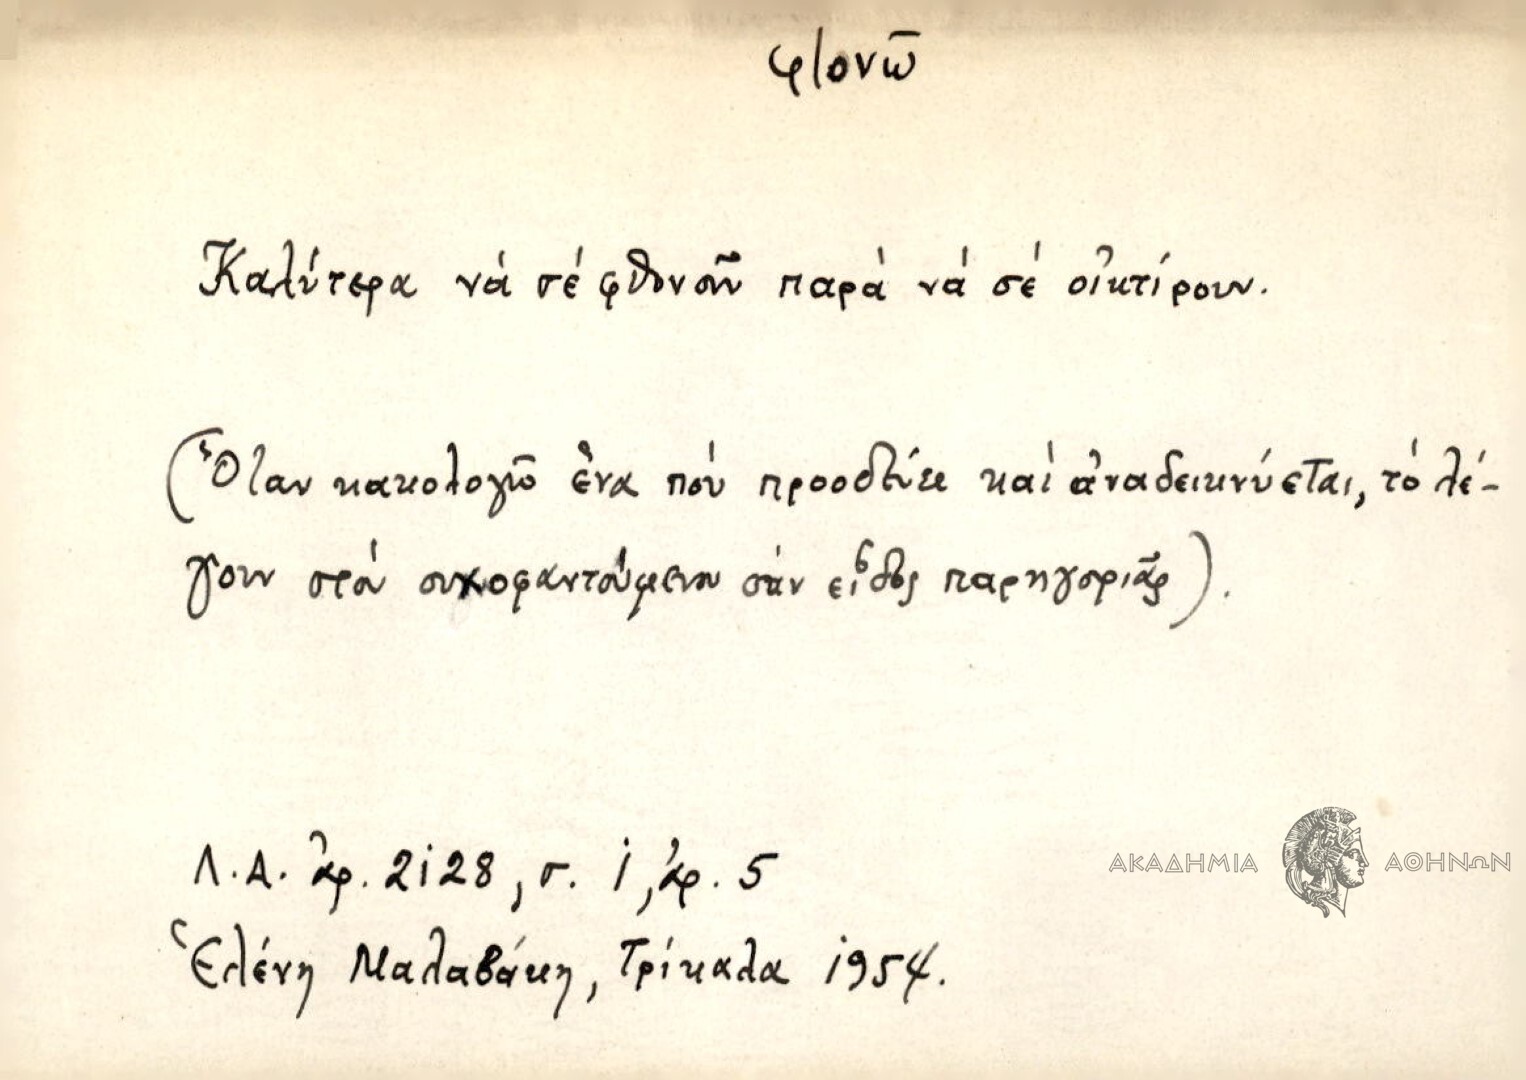 φθονῶ
Καλύτερα νά σέ φθονοῦν παρά νά σέ οἰκτίρουν.
(Ὅταν κακολογοῦν ἕνα πού προοδεύει καί ἀναδεικνύεται, τό λέ-
γουν στόν συκοφαντούμενον σάν εἶδος παρηγοριᾶς).
Λ.Α. ἀρ. 2128, σ. 1, ἀρ. 5
ΑΚΑΔΗΜΙΑ ΑΘΗΝΩΝ
Ἑλένη Μαλαβάκη, Τρίκαλα 1954.